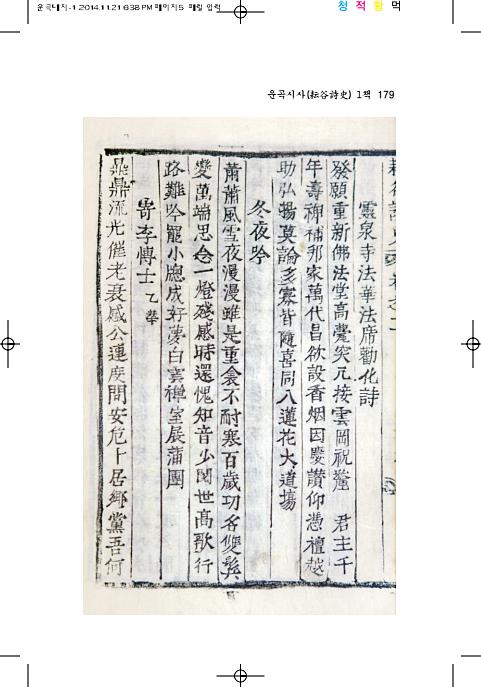 운곡내지-1 2014.11.21 6:38 PM 페이지5
청 적 황 먹
운곡시사(耘谷詩史) 1책 179
靈泉寺法華法席勸化詩
發願重新佛法堂高甍突兀接雲岡祝釐 君主千
年壽裨補邦家萬代昌欲設香烟因慶讃仰憑檀越
助弘揚莫論多寡皆隨喜同入蓮花大道場
冬夜吟
蕭蕭風雪夜漫漫雖是重衾不耐寒百歲功名雙鬂
變萬端思念一燈殘感時還愧知音少閱世高歌行
路難吟罷小窓成好夢白雲禪室展蒲團
寄李博士
鼎鼎流光催老衰感公連度問安危卜居鄕黨吾何